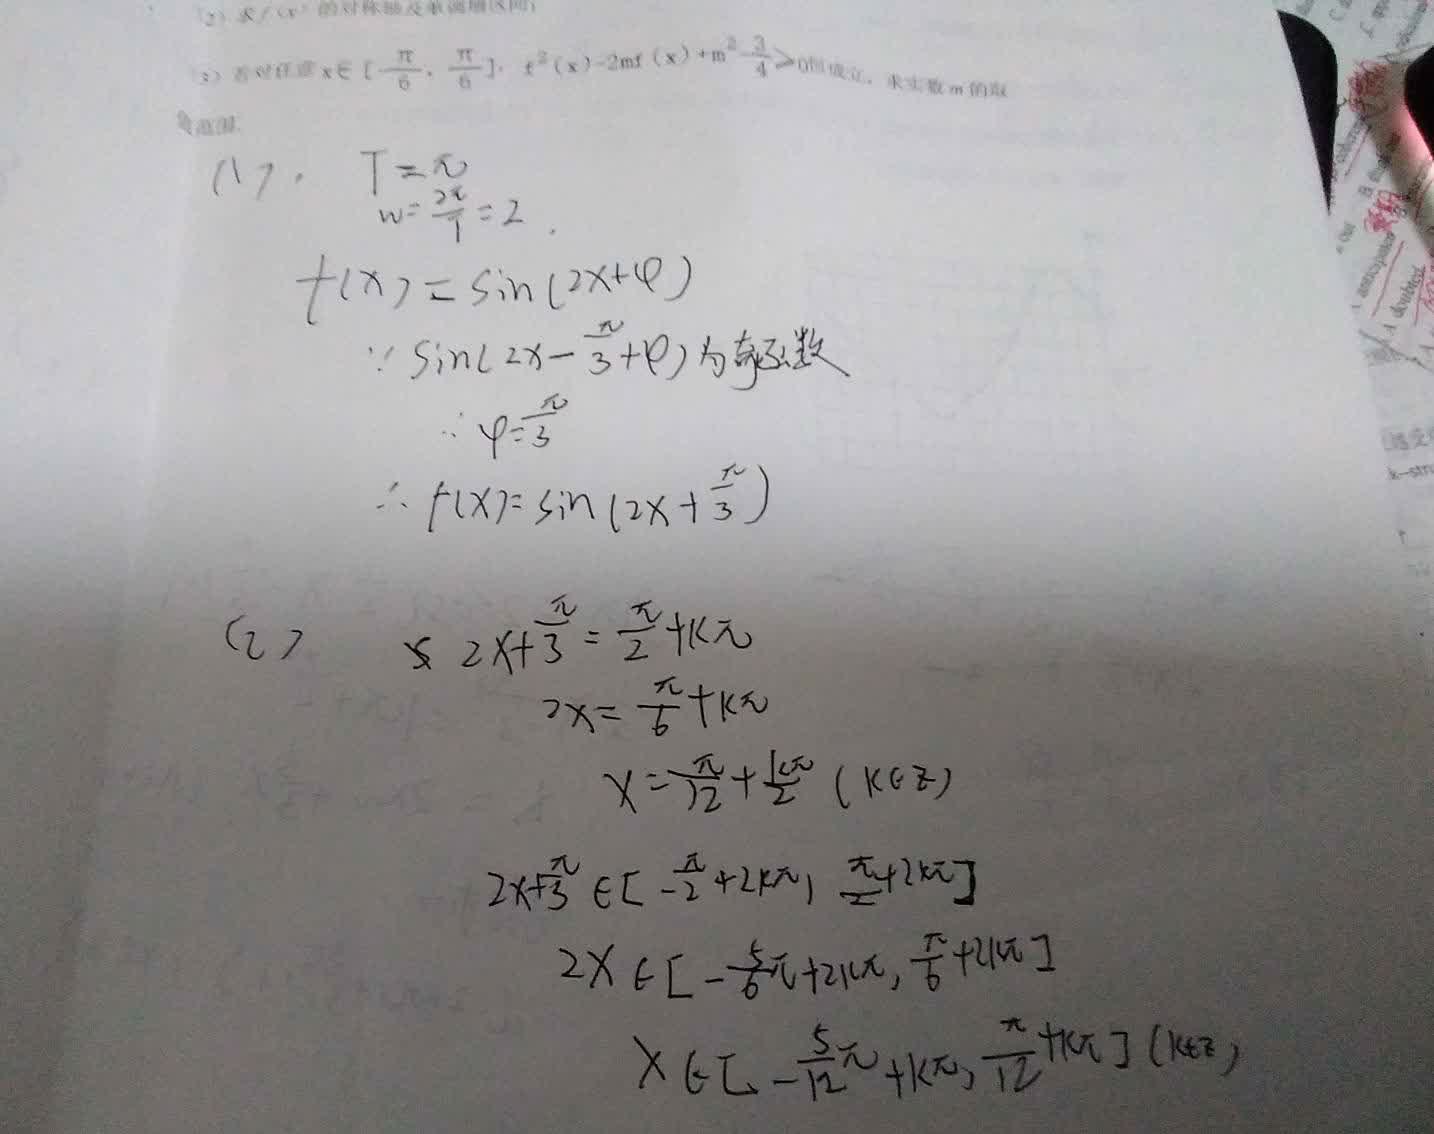 (2) 求f(x)的对称轴及单调增区间;
(3) 若对任意x∈[-π/6, π/6], f²(x)-2mf(x)+m²-3/4≥0恒成立, 求实数m的取
值范围.
(1). T=π
w=2π/T=2.
f(x)=sin(2x+φ)
∵ sin(2x-π/3+φ)为奇函数
∴ φ=π/3
∴ f(x)=sin(2x+π/3)
(2) 2x+π/3=π/2+kπ
2x=π/6+kπ
x=π/12+kπ/2 (k∈z)
2x+π/3∈[-π/2+2kπ, π/2+2kπ]
2x∈[-5/6π+2kπ, π/6+2kπ]
x∈[-5/12π+kπ, π/12+kπ] (k∈z)
anticipate
doubted